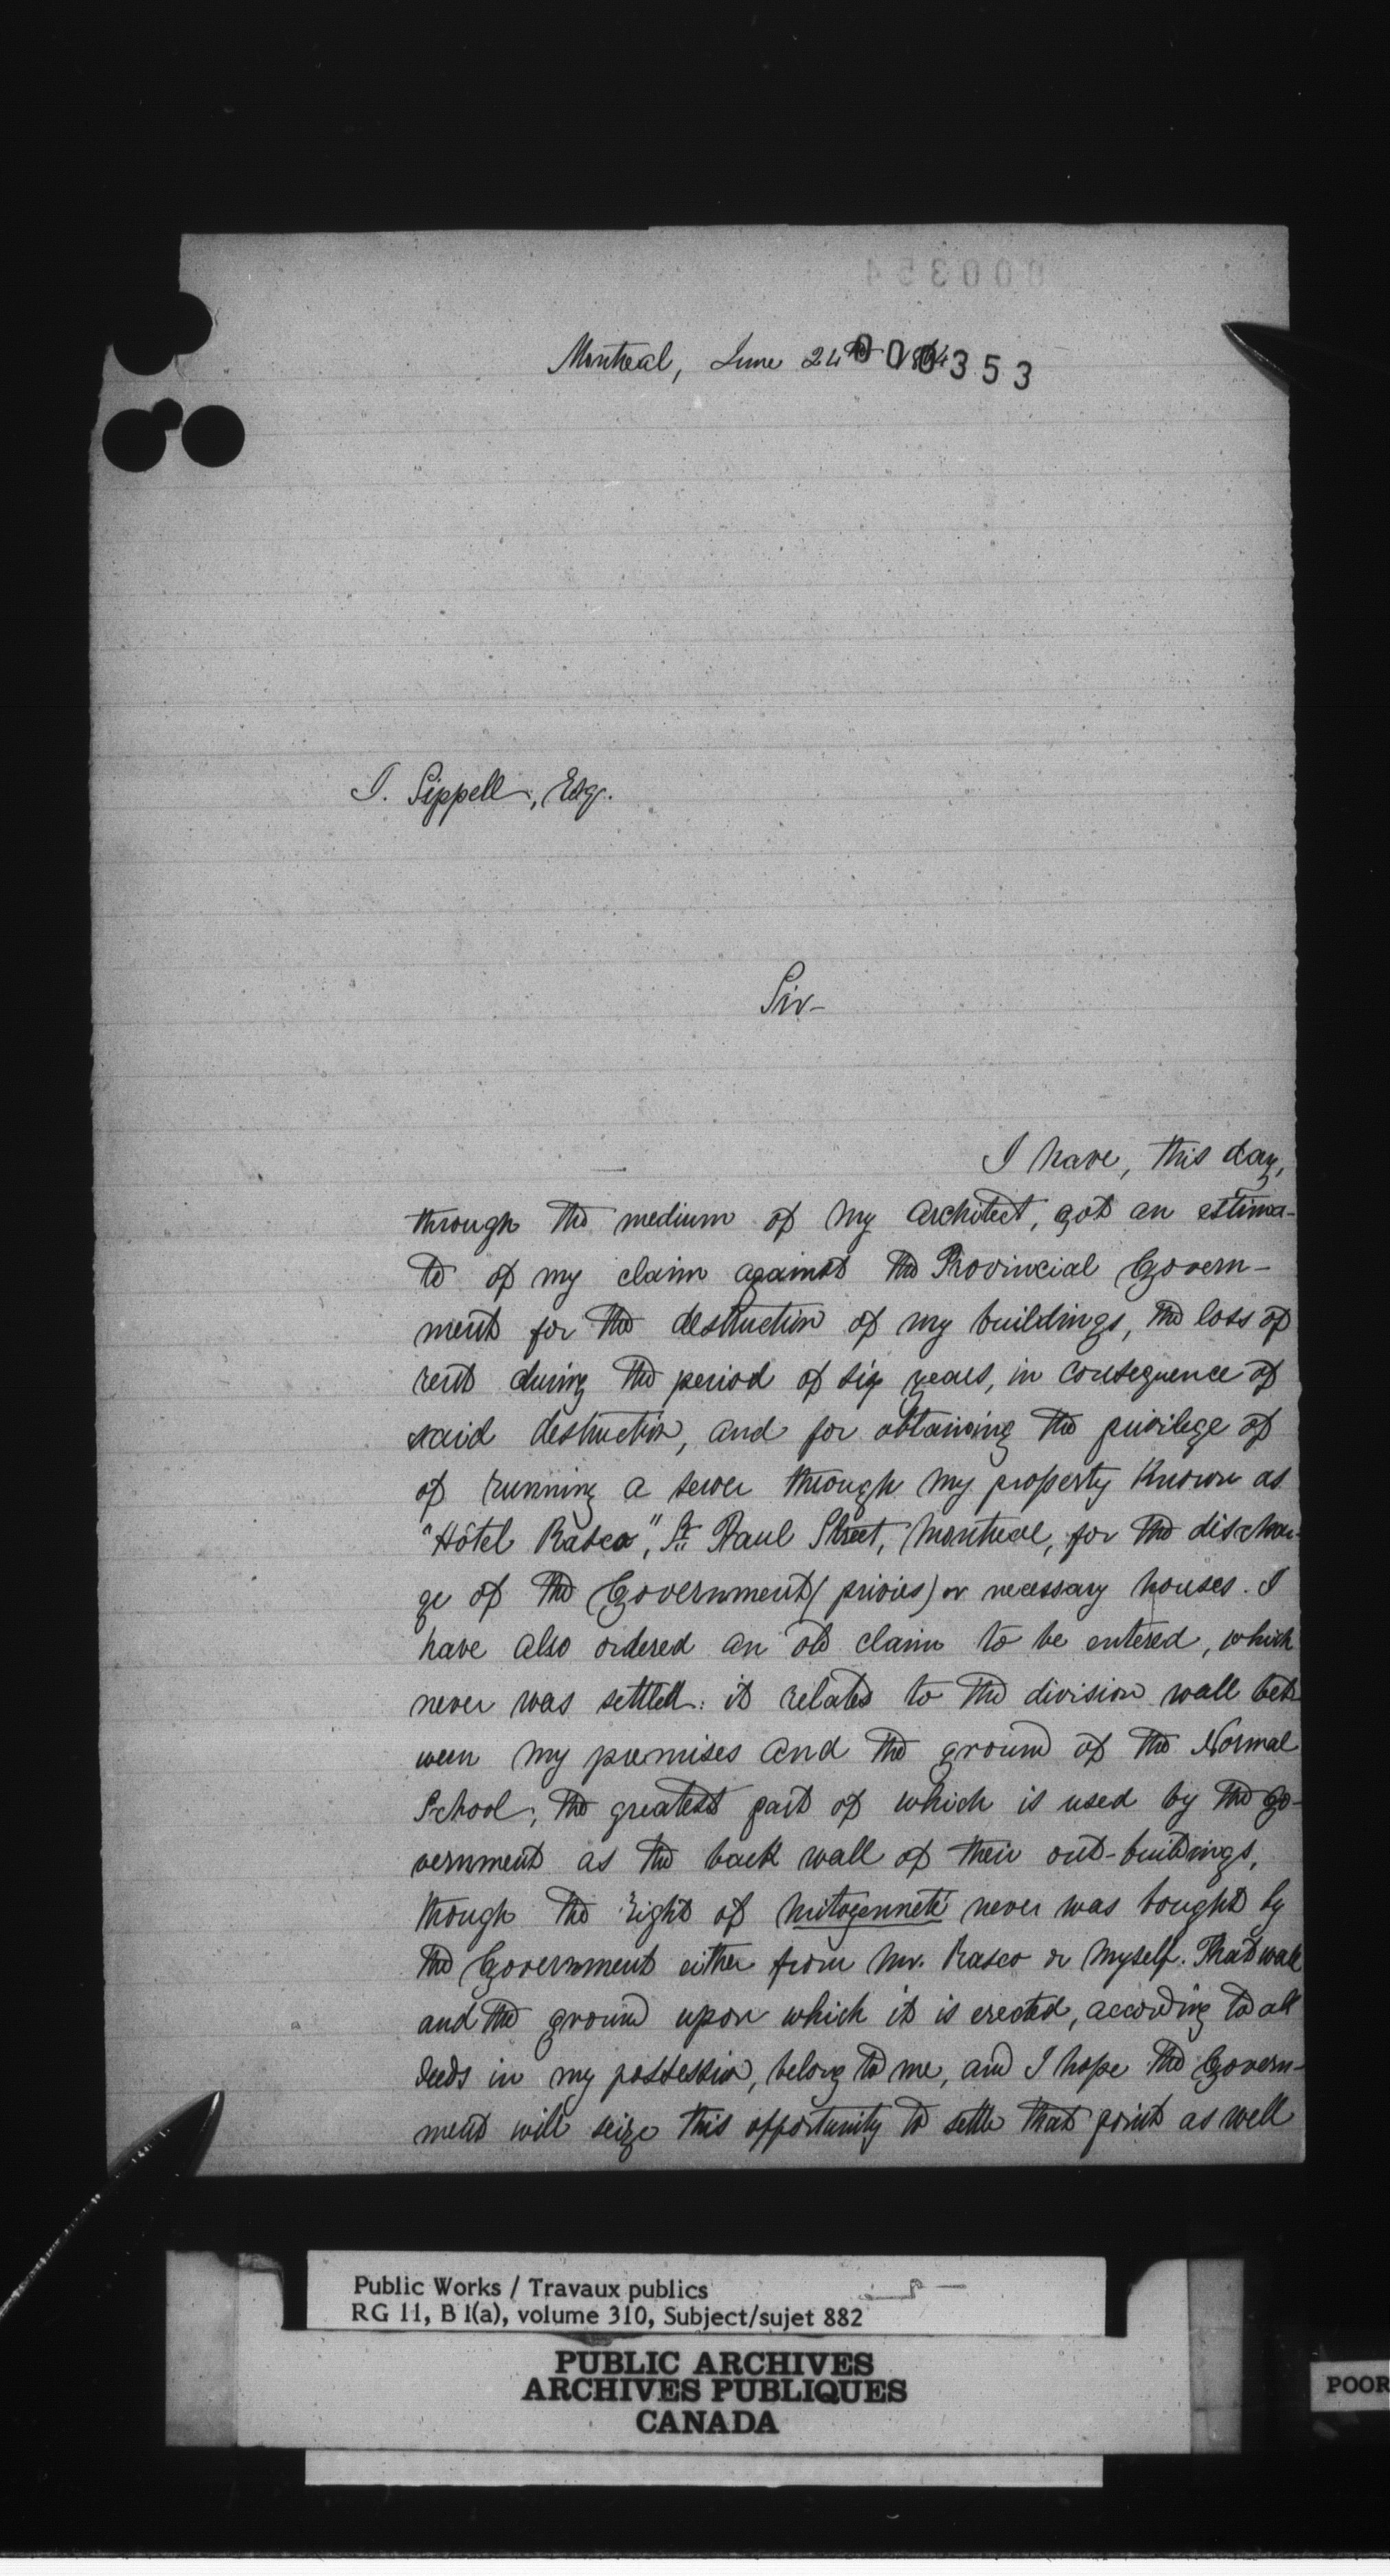 000354
Montreal, June 24th 1864
000353
J. Sippell, Esq.
Sir-
I have, this day,
through the medium of my architect, got an estima-
te of my claim against the Provincial Govern-
ment for the destruction of my buildings, the loss of
rent during the period of six years, in consequence of
said destruction, and for obtaining the privilege of
of running a sewer through my property known as
"Hôtel Rasco", St. Paul Street, Montreal, for the dischar-
ge of the Government (privies) or necessary houses. I
have also ordered an old claim to be entered, which
never was settled: it relates to the division wall bet-
ween my premises and the ground of the Normal
School; the greatest part of which is used by the go-
vernment as the back wall of their out-buildings,
though the right of mitoyenneté never was bought by
the Government either from Mr. Rasco or myself. That wall
and the ground upon which it is erected, according to all
deeds in my possession, belong to me, and I hope the Govern-
ment will seize this opportunity to settle that point as well
Public Works / Travaux publics
RG 11, B 1(a), volume 310, Subject/sujet 882
PUBLIC ARCHIVES
ARCHIVES PUBLIQUES
CANADA
POOR